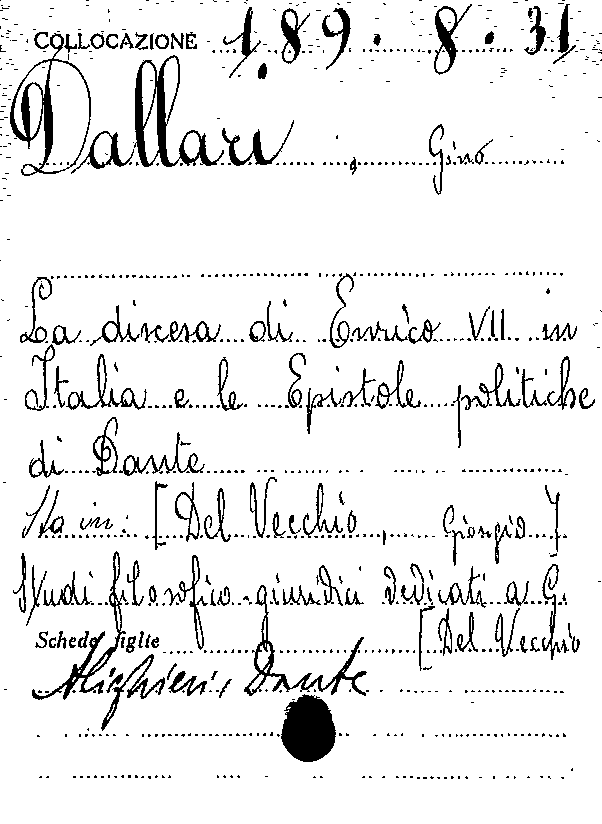 COLLOCAZIONE 1.89.8.31
Dallari, Gino
La discesa di Enrico VII in
Italia e le Epistole politiche
di Dante
Sta in: [Del Vecchio, Giorgio]
Studi filosofico-giuridici dedicati a G.
[Del Vecchio
Schede figlie
Alighieri, Dante